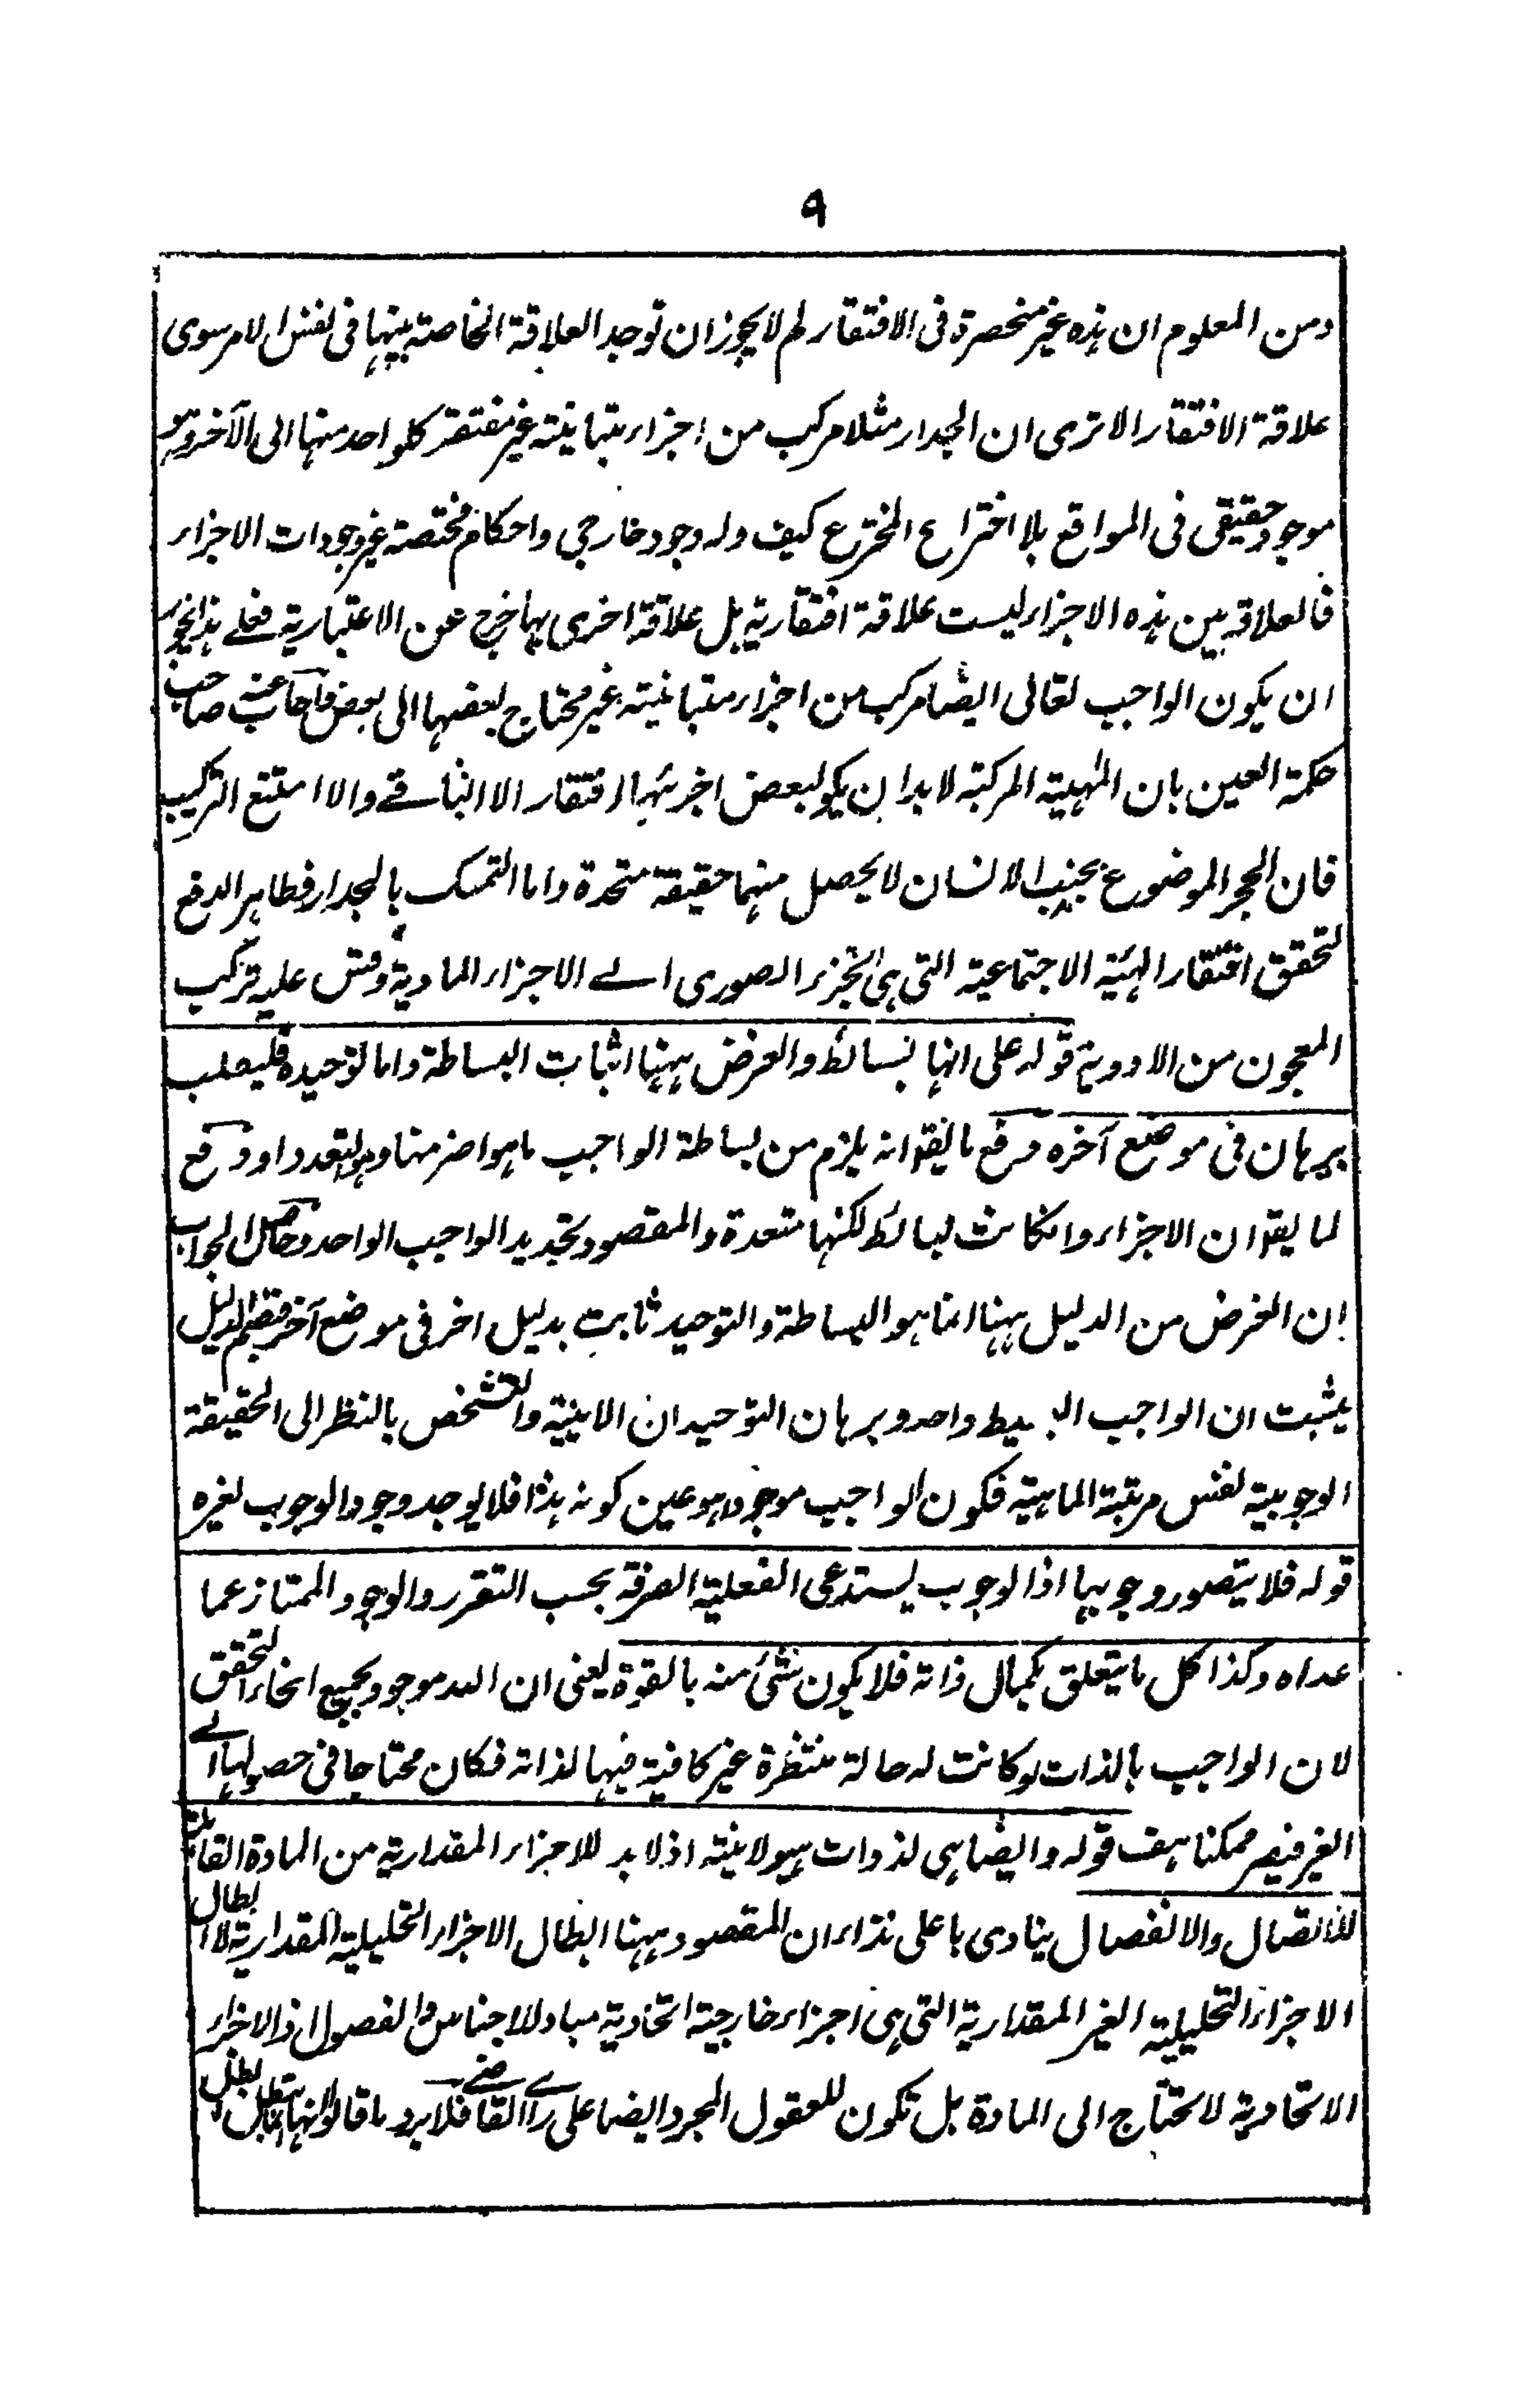 ٩
ومن المعلوم ان هذه غير منحصرة فى الافتقار لم لا يجوز ان توجد العلاقة الخاصة بينها فى نفس الامر سوى
علاقة الافتقار الا ترى ان الجدار مثلا مركب من اجزاء متباينة غير مفتقر كلواحد منها الى الآخر وهو
موجود حقيقى فى الواقع بلا اختراع المخترع كيف وله وجود خارجى واحكام مختصة غير وجودات الاجزاء
فالعلاقة بين هذه الاجزاء ليست علاقة افتقارية بل علاقة اخرى بها خرج عن الاعتبارية فعلى هذا يجوز
ان يكون الواجب تعالى ايضا مركب من اجزاء متباينة غير محتاج بعضها الى بعض فاجاب عنه صاحب
حكمة العين بان المهية المركبة لا بد ان يكو لبعض اجزئها افتقار الا الباقے والا امتنع التركيب
فان الحجر الموضوع بجنب الانسان لا يحصل منهما حقيقة متحدة واما التمسك بالجدار فظاهر الدفع
لتحقق افتقار الهئية الاجتماعية التى هى الجزء الصورى الے الاجزاء المادية وقس عليه تركب
المعجون من الادوية قوله على انها بسائط والغرض ههنا اثبات البساطة واما توحيده فليطلب
ببرهان فى موضع آخره دفع ما يقو انه يلزم من بساطة الواجب ما هو اضر منها وهو التعدد او دفع
لما يقو ان الاجزاء وانكانت بسائط لكنها متعدة والمقصود تجديد الواجب الواحد وحاصل الجواب
ان الغرض من الدليل ههنا انما هو البساطة والتوحيد ثابت بدليل اخر فى موضع آخر فبضم الدليل
يثبت ان الواجب البسيط واحد وبرهان التوحيد ان الاينية والتشخص بالنظر الى الحقيقة
الوجوبية نفس مرتبة الماهية فكون الواجب موجودا هو عين كونه هذا فلا يوجد وجود الوجوب لغيره
قوله فلا يتصور وجوبها اذ الوجوب يستدعى الفعلية الصرفة بحسب التقرر والوجود الممتاز عما
عداه وكذا كل ما يتعلق بكمال ذاته فلا يكون شئ منه بالقوة يعنى ان الله موجود بجميع انحاء التحقق
لان الواجب بالذات لو كانت له حالة منتظرة غير كافية فيها لذاته فكان محتاجا فى حصولها الے
الغير فيصر ممكنا هف قوله وايضا هى لذوات هيولانية اذ لا بد للاجزاء المقدارية من المادة القابلة
للاتصال والانفصال ينادى باعلى نداء ان المقصود ههنا ابطال الاجزاء التحليلية المقدارية لا ابطال
الاجزاء التحليلية الغير المقدارية التى هى اجزاء خارجية اتحادية مباد للاجناس والفصول اذ الاجزاء
الاتحادية لا تحتاج الى المادة بل تكون للعقول المجرد ايضا على راے القاضے فلا يرد ما قالوا